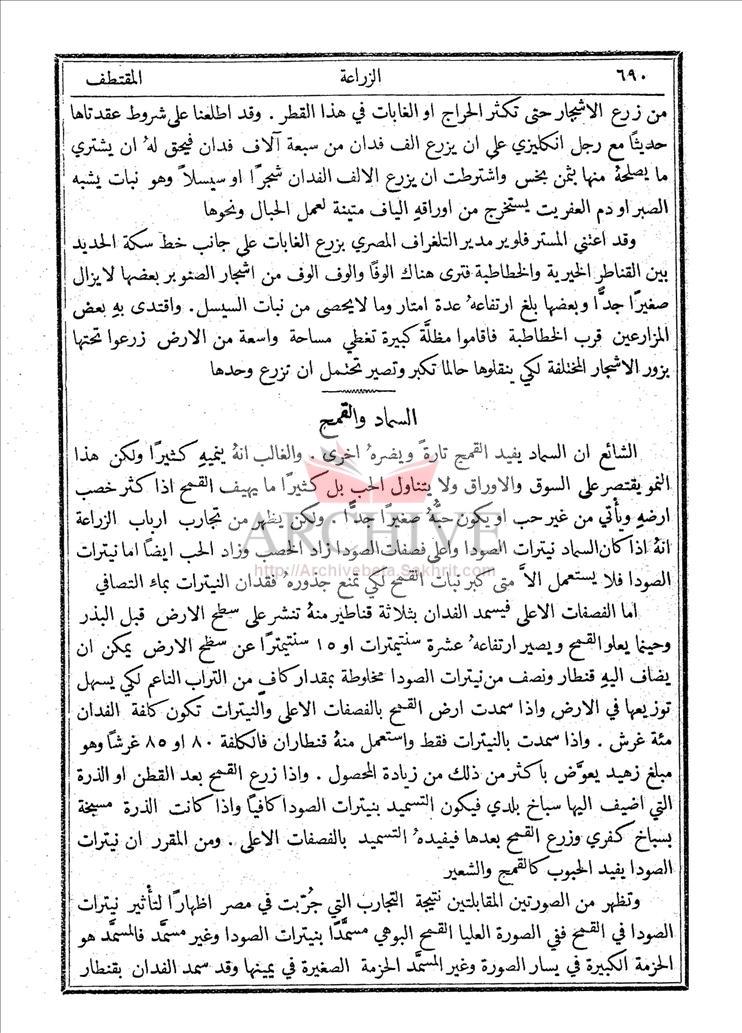 ٦٩٠ الزراعة المقتطف
من زرع الاشجار حتى تكثر الحراج او الغابات في هذا القطر . وقد اطلعنا على شروط عقدتاها
حديثًا مع رجل انكليزي على ان يزرع الف فدان من سبعة آلاف فدان فيحق لهُ ان يشتري
ما يصلحهُ منها بثمن بخس واشترطت ان يزرع الالف الفدان شجرًا او سيسلاً وهو نبات يشبه
الصبر او دم العفريت يستخرج من اوراقهِ الياف متينة لعمل الحبال ونحوها
وقد اعتنى المستر فلوير مدير التلغراف المصري بزرع الغابات على جانب خط سكة الحديد
بين القناطر الخيرية والخطاطبة فترى هناك الوفًا والوف الوف من اشجار الصنوبر بعضها لا يزال
صغيرًا جدًّا وبعضها بلغ ارتفاعهُ عدة امتار وما لا يحصى من نبات السيسل . واقتدى بهِ بعض
المزارعين قرب الخطاطبة فاقاموا مظلَّة كبيرة تغطي مساحة واسعة من الارض زرعوا تحتها
بزور الاشجار المختلفة لكي ينقلوها حالما تكبر وتصير تحتمل ان تزرع وحدها
السماد والقمح
الشائع ان السماد يفيد القمح تارةً ويضرهُ اخرى . والغالب انهُ ينميهِ كثيرًا ولكن هذا
النمو يقتصر على السوق والاوراق ولا يتناول الحب بل كثيرًا ما يهيف القمح اذا كثر خصب
ارضهِ ويأتي من غير حب او يكون حبهُ صغيرًا جدًّا ولكن يظهر من تجارب ارباب الزراعة
انهُ اذا كان السماد نيترات الصودا واعلى فصفات الصودا زاد الخصب وزاد الحب ايضًا اما نيترات
الصودا فلا يستعمل الاَّ متى كبر نبات القمح لكي تمنع جذورهُ فقدان النيترات بماء التصافي
اما الفصفات الاعلى فيسمد الفدان بثلاثة قناطير منهُ تنشر على سطح الارض قبل البذر
وحينما يعلو القمح ويصير ارتفاعهُ عشرة سنتيمترات او ١٥ سنتيمترًا عن سطح الارض يمكن ان
يضاف اليهِ قنطار ونصف من نيترات الصودا مخلوطة بمقدار كافٍ من التراب الناعم لكي يسهل
توزيعها في الارض واذا سمدت ارض القمح بالفصفات الاعلى والنيترات تكون كلفة الفدان
مئة غرش . واذا سمدت بالنيترات فقط واستعمل منهُ قنطاران فالكلفة ٨٠ او ٨٥ غرشًا وهو
مبلغ زهيد يعوَّض باكثر من ذلك من زيادة المحصول . واذا زرع القمح بعد القطن او الذرة
التي اضيف اليها سباخ بلدي فيكون التسميد بنيترات الصودا كافيًا واذا كانت الذرة مسبخة
بسباخ كفري وزرع القمح بعدها فيفيدهُ التسميد بالفصفات الاعلى . ومن المقرر ان نيترات
الصودا يفيد الحبوب كالقمح والشعير
وتظهر من الصورتين المقابلتين نتيجة التجارب التي جُرّبت في مصر اظهارًا لتأثير نيترات
الصودا في القمح ففي الصورة العليا القمح البوهي مسمَّدًا بنيترات الصودا وغير مسمَّد فالمسمَّد هو
الحزمة الكبيرة في يسار الصورة وغير المسمَّد الحزمة الصغيرة في يمينها وقد سمد الفدان بقنطار
ARCHIVE
http://Archivebeta.Sakhrit.com